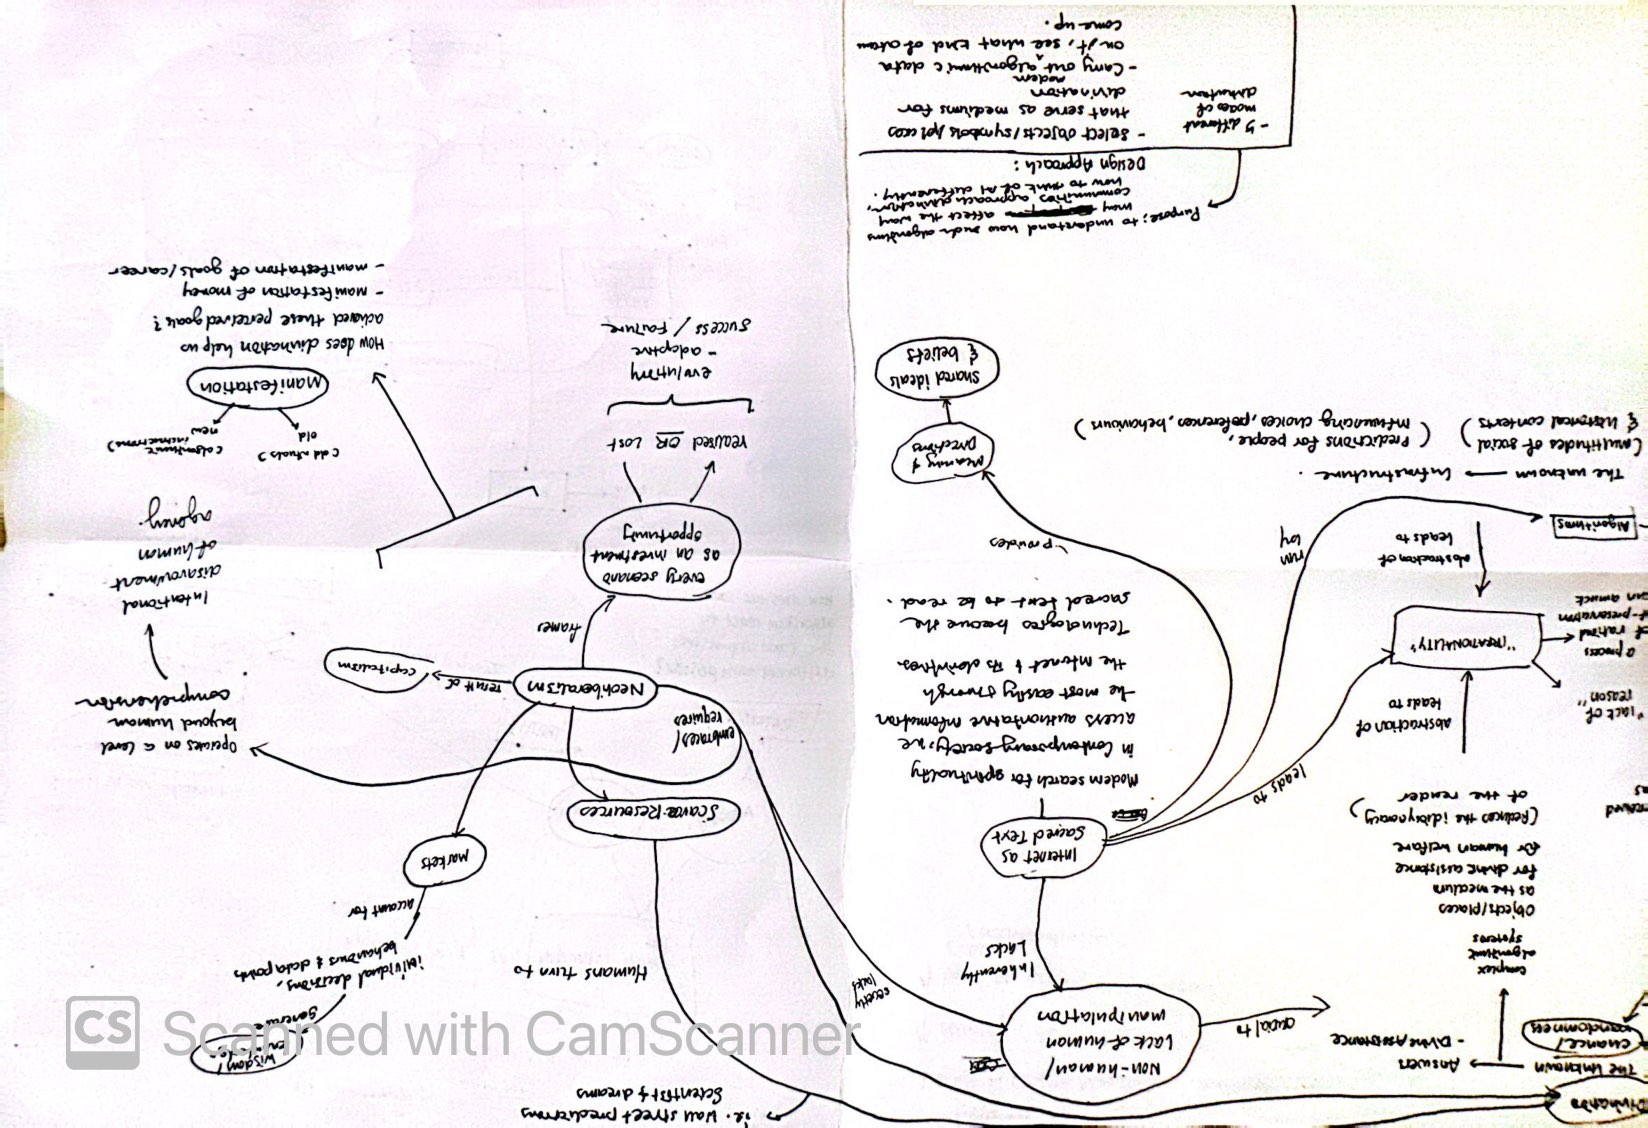 Divination
The Unknown
chance/
randomness
Answers
- Divine Assistance
complex
algorithmic
systems
Objects/places
as the medium
for divine assistance
for human welfare
(Reduces the idiosyncracy)
of the render
abstraction of
leads to
"IRRATIONALITY"
"lack of
reason"
a process
of rational
abstraction of
leads to
Algorithms
The unknown — Infrastructure.
(multitudes of social
& historical contexts)
(Predictions for people,
influencing choices, preferences, behaviours)
crucial to
Non-human/
lack of human
manipulation
Inherently
Lacks
Internet as
Sacred Text
leads to
run
by
Modern search for spirituality
in contemporary society, we
access authoritative information
the most easily through
the internet & its derivatives.
Technologies become the
sacred text to be read.
provides
Meaning &
Directions
Shared ideals
& beliefs
Purpose: to understand how such algorithms
may affect the way
communities approach divination,
how to think of it differently.
Design Approach:
- Select objects/symbols/places
that serve as mediums for
modern
divination
- Carry out algorithmic data
on it, see what kind of
come up.
- 5 different
modes of
divination
i.e. Wall street predictions
Scientist & dreams
Humans turn to
Scarce Resources
embraces/
requires
Neoliberalism
result of
capitalism
frames
every scenario
as an investment
opportunity
realised OR Lost
- adaptive
success / Failure
wisdom/
individual decisions,
behaviours & data points
account for
markets
Operates on a level
beyond human
comprehension
Intentional
disavowment
of human
agency.
(old rituals)
old
new
(algorithmic
interactions)
Manifestation
How does divination help us
achieved these perceived goals?
- manifestation of money
- manifestation of goals/career
CS Scanned with CamScanner